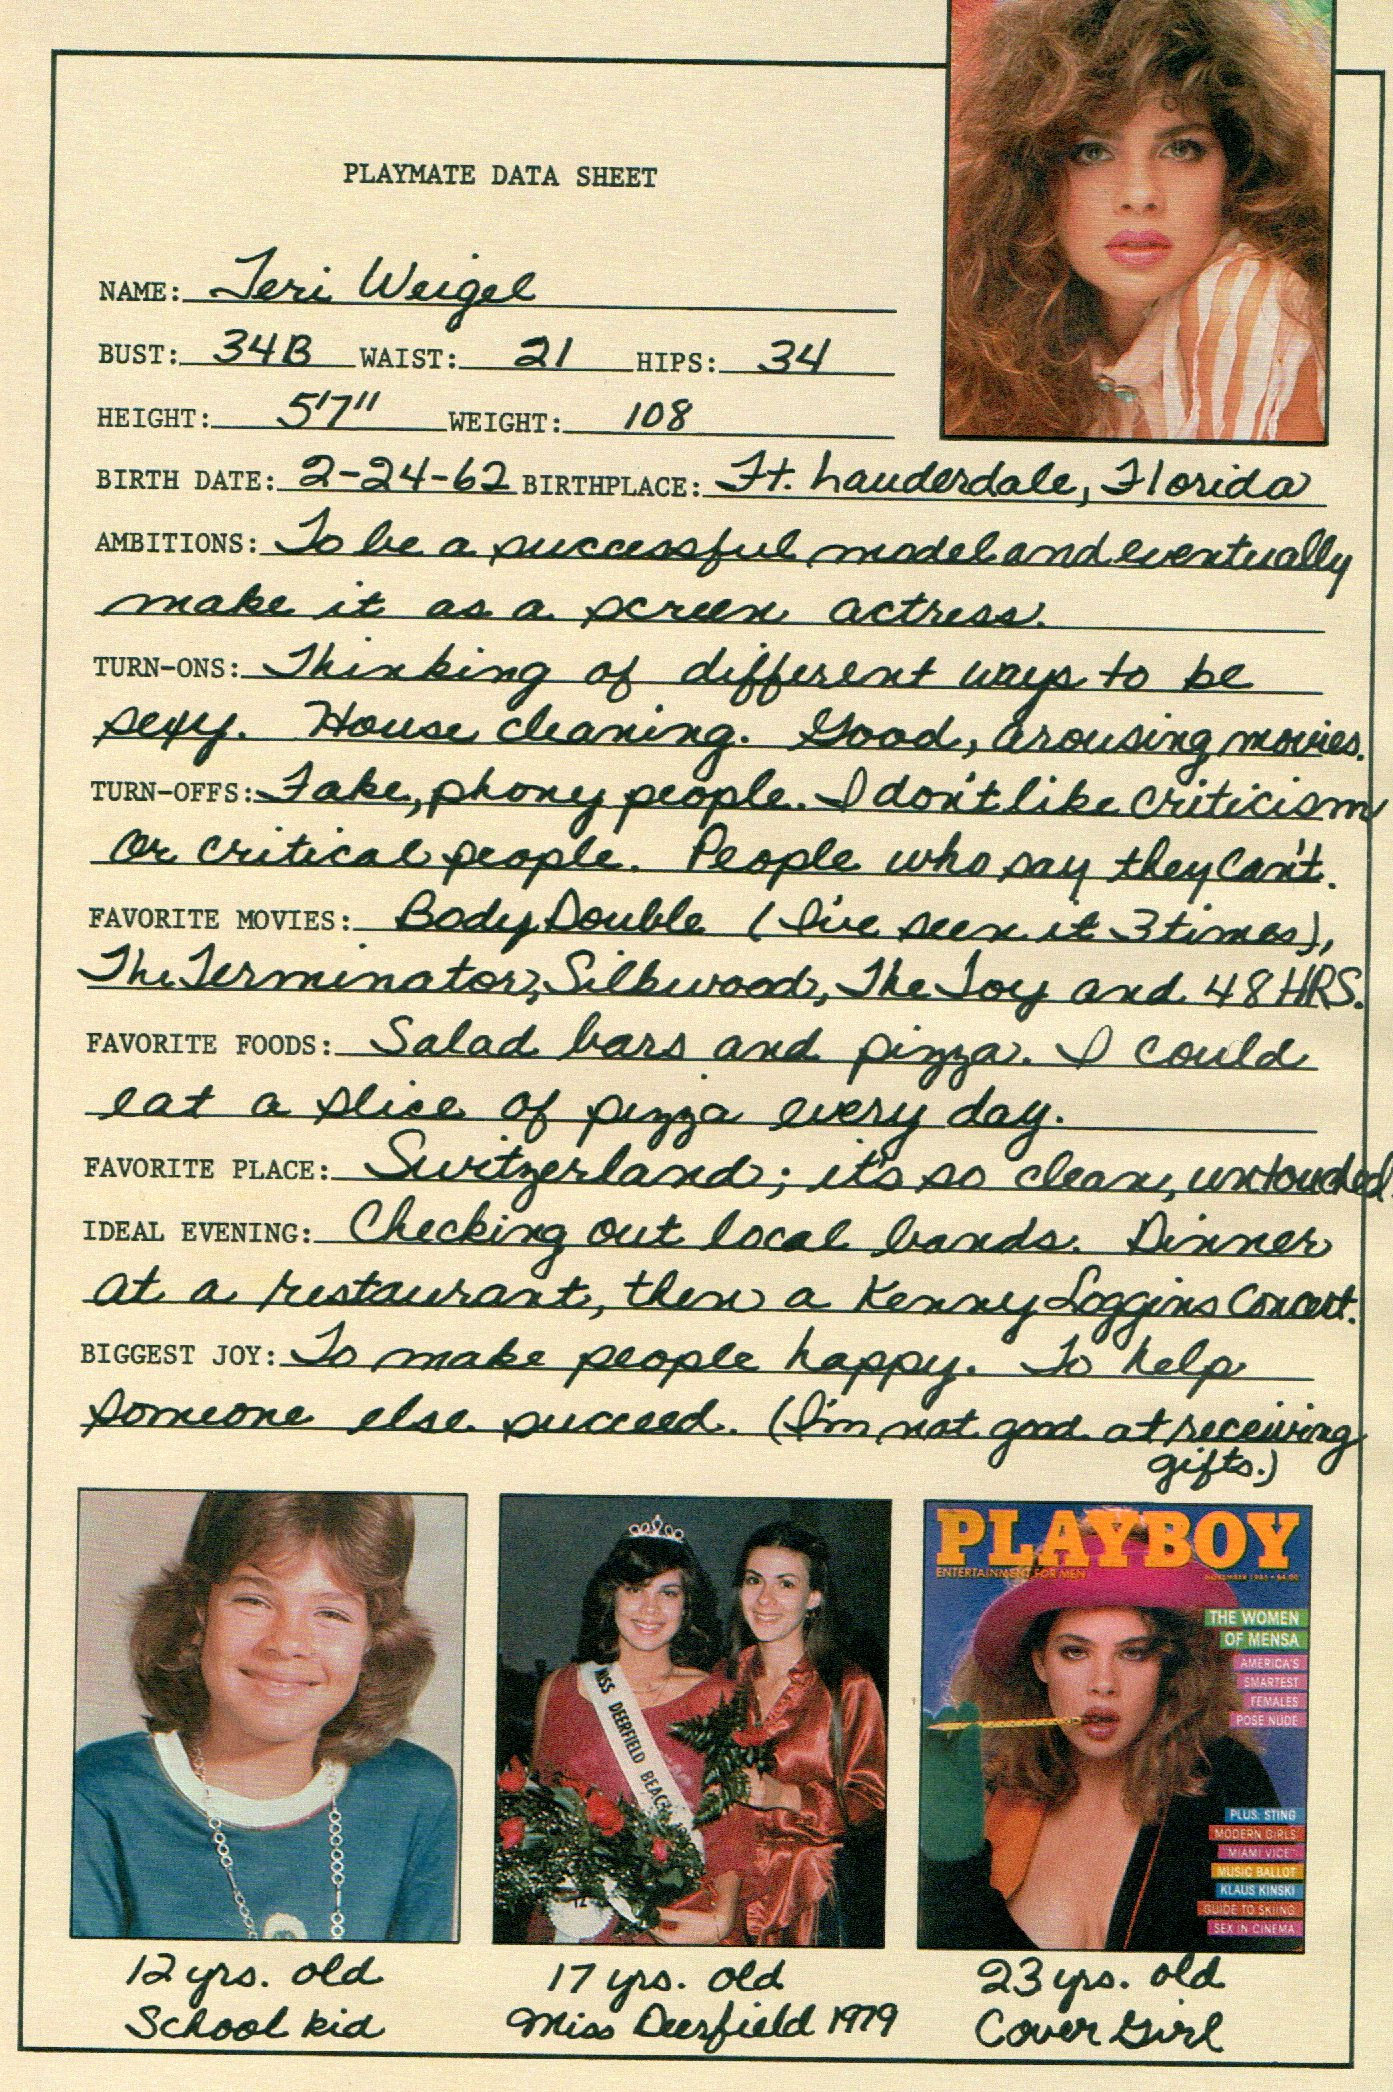 PLAYMATE DATA SHEET
NAME: Teri Weigel
BUST: 34B WAIST: 21 HIPS: 34
HEIGHT: 5'7" WEIGHT: 108
BIRTH DATE: 2-24-62 BIRTHPLACE: Ft. Lauderdale, Florida
AMBITIONS: To be a successful model and eventually
make it as a screen actress.
TURN-ONS: Thinking of different ways to be
sexy. House cleaning. Good, arousing movies.
TURN-OFFS: Fake, phony people. I don't like criticism
or critical people. People who say they can't.
FAVORITE MOVIES: Body Double (I've seen it 3 times),
The Terminator, Silkwood, The Toy and 48 HRS.
FAVORITE FOODS: Salad bars and pizza. I could
eat a slice of pizza every day.
FAVORITE PLACE: Switzerland; it's so clean, untouched.
IDEAL EVENING: Checking out local bands. Dinner
at a restaurant, then a Kenny Loggins Concert.
BIGGEST JOY: To make people happy. To help
someone else succeed. (I'm not good at receiving
gifts.)
MISS DEERFIELD BEACH
PLAYBOY
ENTERTAINMENT FOR MEN NOVEMBER 1985 • $4.00
THE WOMEN
OF MENSA
AMERICA'S
SMARTEST
FEMALES
POSE NUDE
PLUS: STING
MODERN GIRLS
"MIAMI VICE"
MUSIC BALLOT
KLAUS KINSKI
GUIDE TO SKIING
SEX IN CINEMA
12 yrs. old
School kid
17 yrs. old
Miss Deerfield 1979
23 yrs. old
Cover Girl